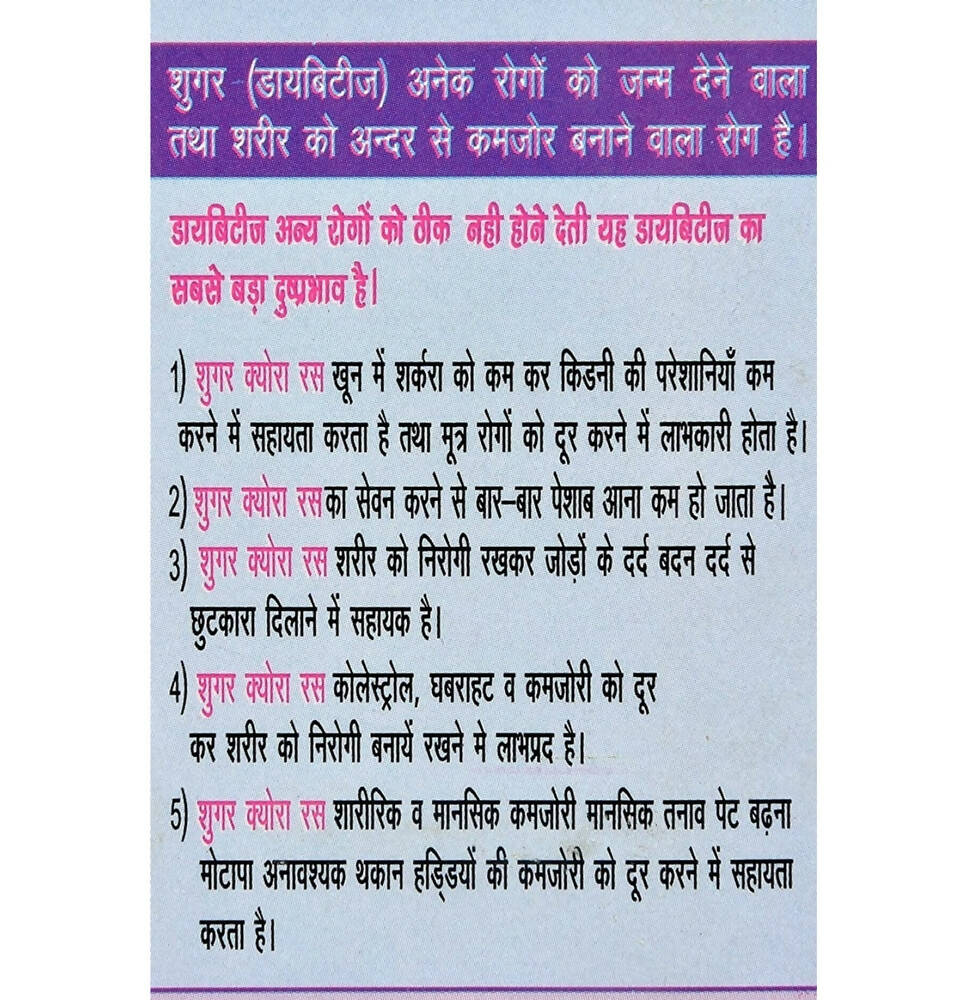 शुगर (डायबिटीज) अनेक रोगों को जन्म देने वाला
तथा शरीर को अन्दर से कमजोर बनाने वाला रोग है।
डायबिटीज अन्य रोगों को ठीक नही होने देती यह डायबिटीज का
सबसे बड़ा दुष्प्रभाव है।
1) शुगर क्योरा रस खून में शर्करा को कम कर किडनी की परेशानियाँ कम
करने में सहायता करता है तथा मूत्र रोगों को दूर करने में लाभकारी होता है।
2) शुगर क्योरा रस का सेवन करने से बार–बार पेशाब आना कम हो जाता है।
3) शुगर क्योरा रस शरीर को निरोगी रखकर जोड़ों के दर्द बदन दर्द से
छुटकारा दिलाने में सहायक है।
4) शुगर क्योरा रस कोलेस्ट्रोल, घबराहट व कमजोरी को दूर
कर शरीर को निरोगी बनायें रखने मे लाभप्रद है।
5) शुगर क्योरा रस शारीरिक व मानसिक कमजोरी मानसिक तनाव पेट बढ़ना
मोटापा अनावश्यक थकान हड्डियों की कमजोरी को दूर करने में सहायता
करता है।